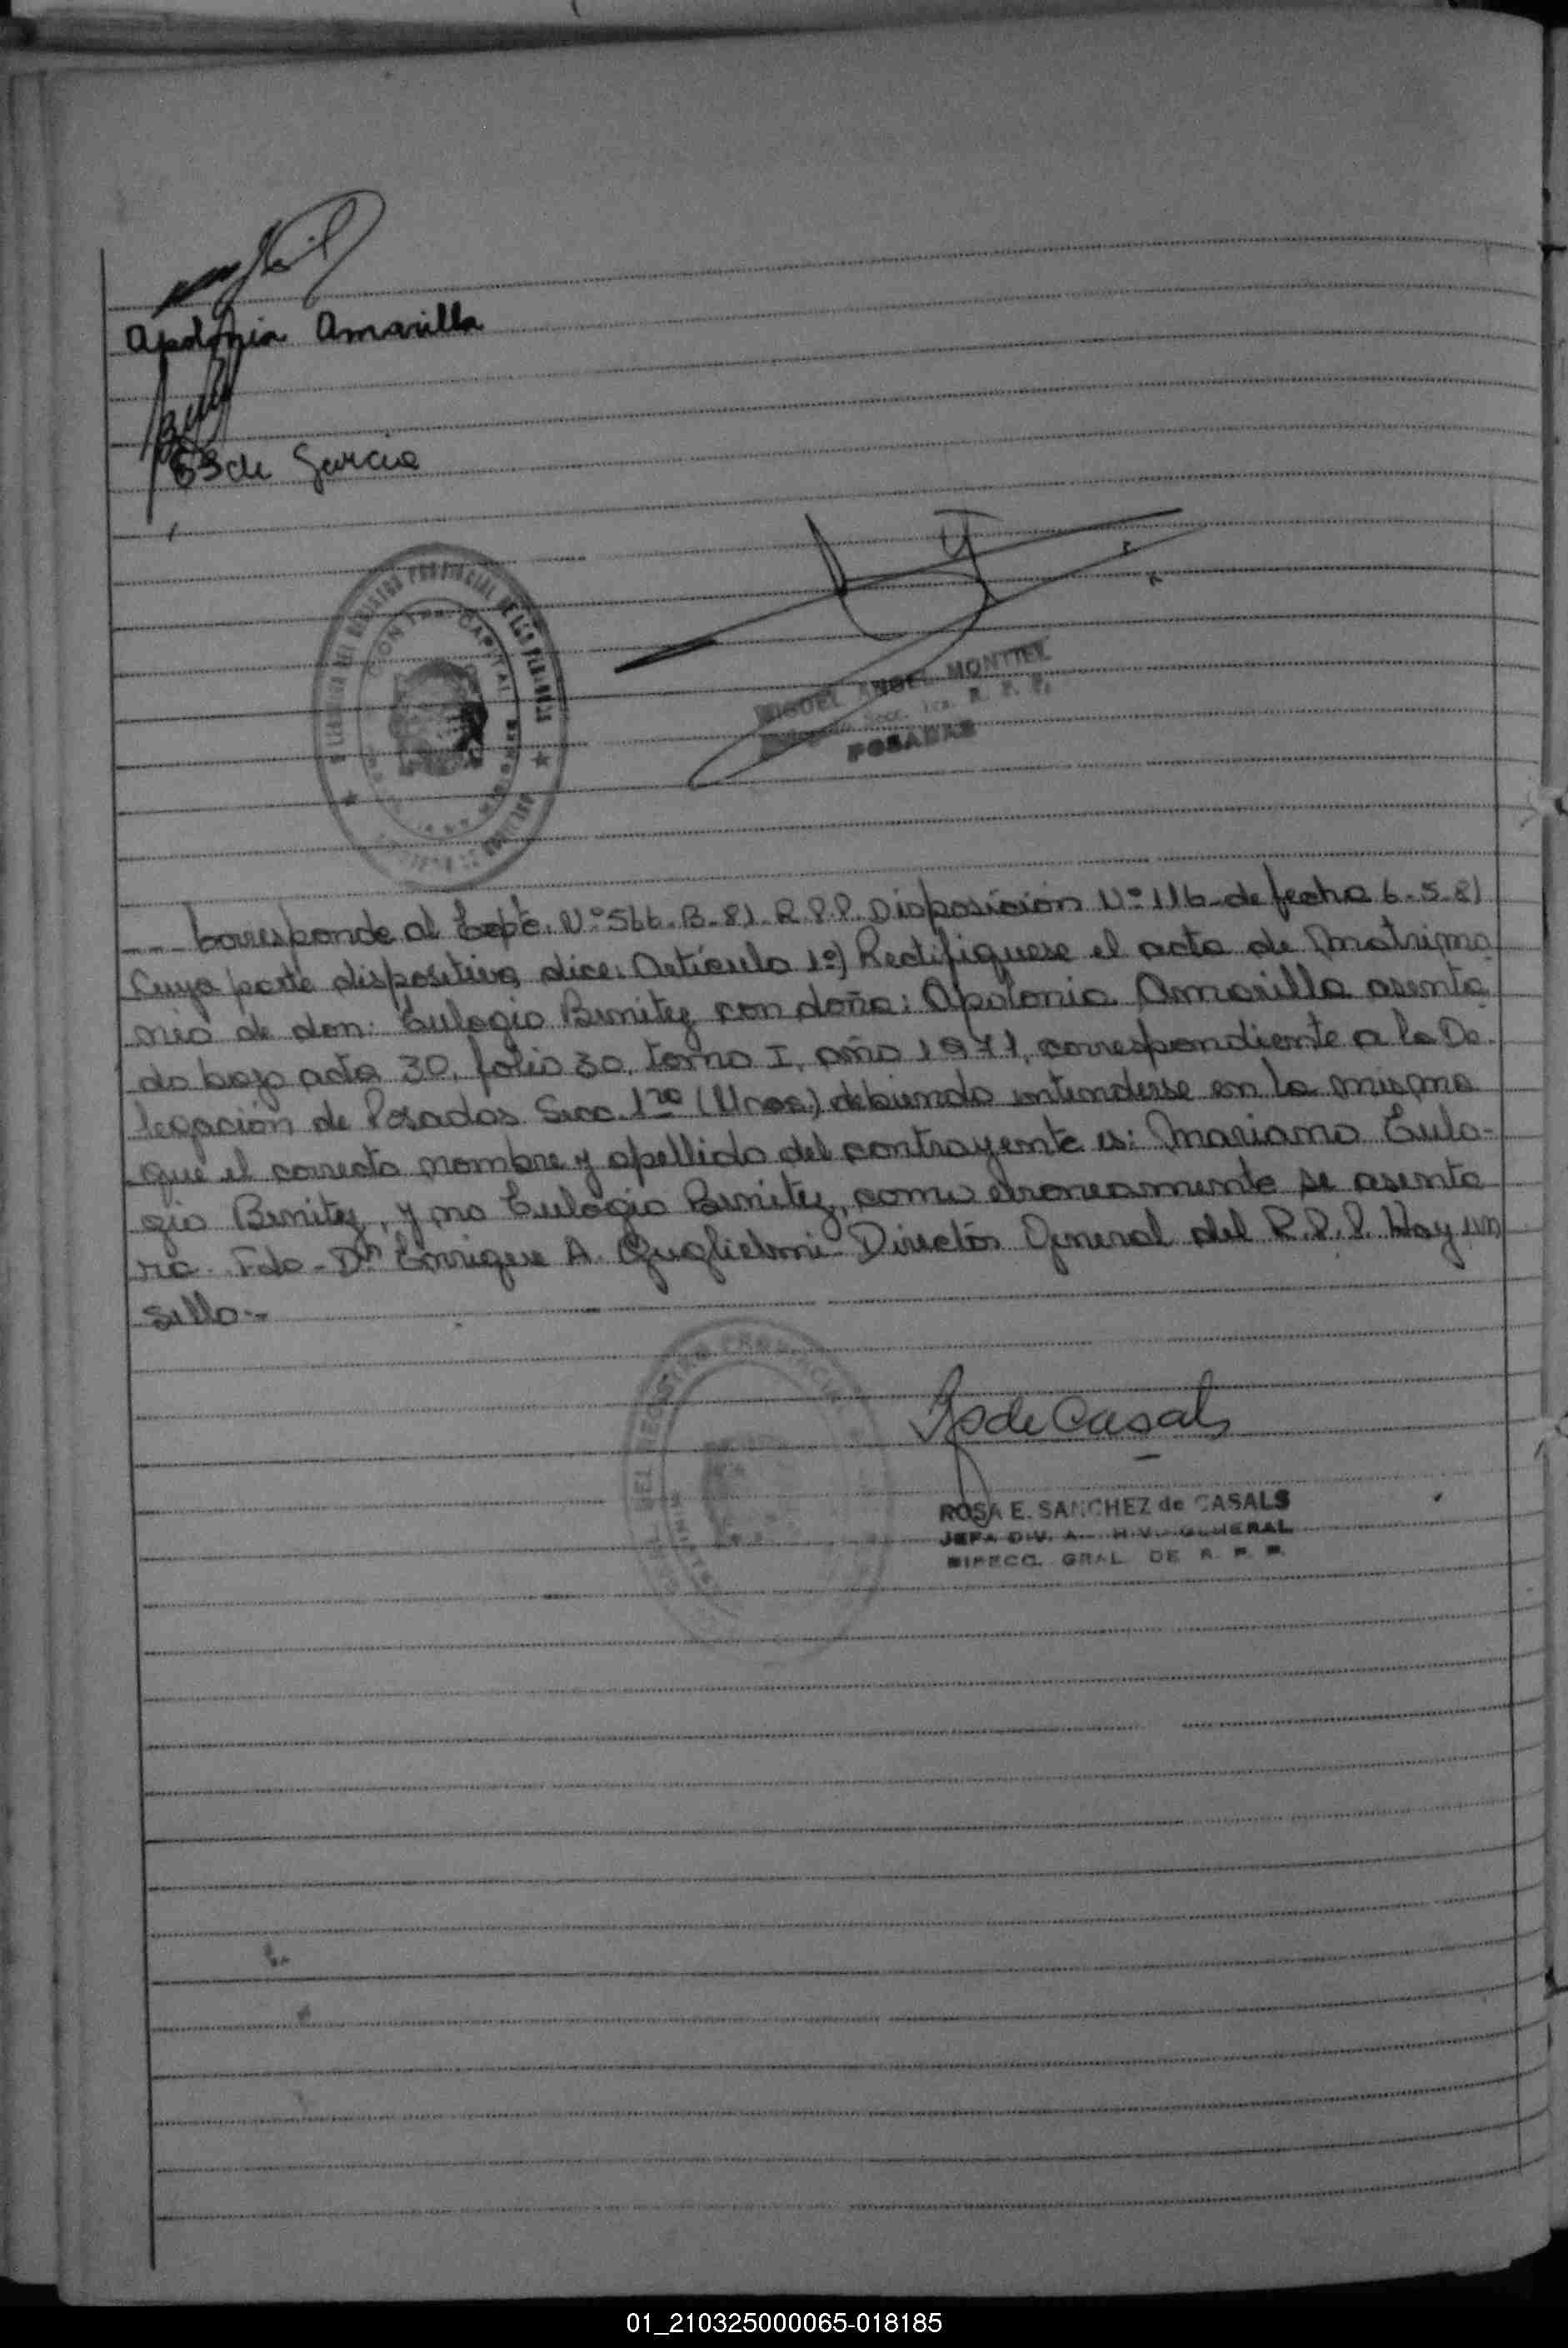 Apolonia Amarilla
de Garcia
DEL REGISTRO PROVINCIAL DE LAS PERSONAS
MIGUEL ANGEL MONTIEL
Secc. 1ra. R. P. P.
POSADAS
--- Corresponde al Expte. Nº 566-B-81 R.P.P. Disposición Nº 116-de fecha 6-5-81
Cuya parte dispositiva dice: Artículo 1º) Rectifiquese el acta de Matrimo
nio de don: Eulogio Benitez con doña: Apolonia Amarilla asenta
da bajo acta 30, folio 30, tomo I, año 1971, correspondiente a la De-
legación de Posadas Secc. 1ra (Mnes) debiendo entenderse en la misma
que el correcto nombre y apellido del contrayente es: Mariano Eulo-
gio Benitez, y no Eulogio Benitez, como erroneamente se asenta
ra. Fdo- Dn Enrique A. Guglielmi- Director General del R.P.P. Hay un
Sello--
REGISTRO PROVINCIAL
de Casals
ROSA E. SANCHEZ de CASALS
JEFA DIV. GENERAL
DIRECC. GRAL DE R. P. P.
01_210325000065-018185